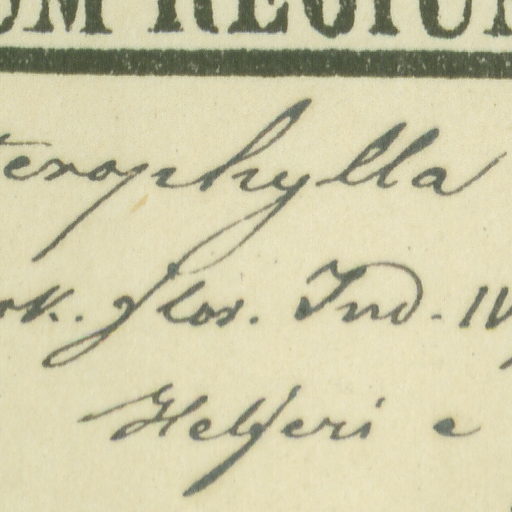 UM REGIUM
terophylla
ok. flor. Ind. IV
Helferi e